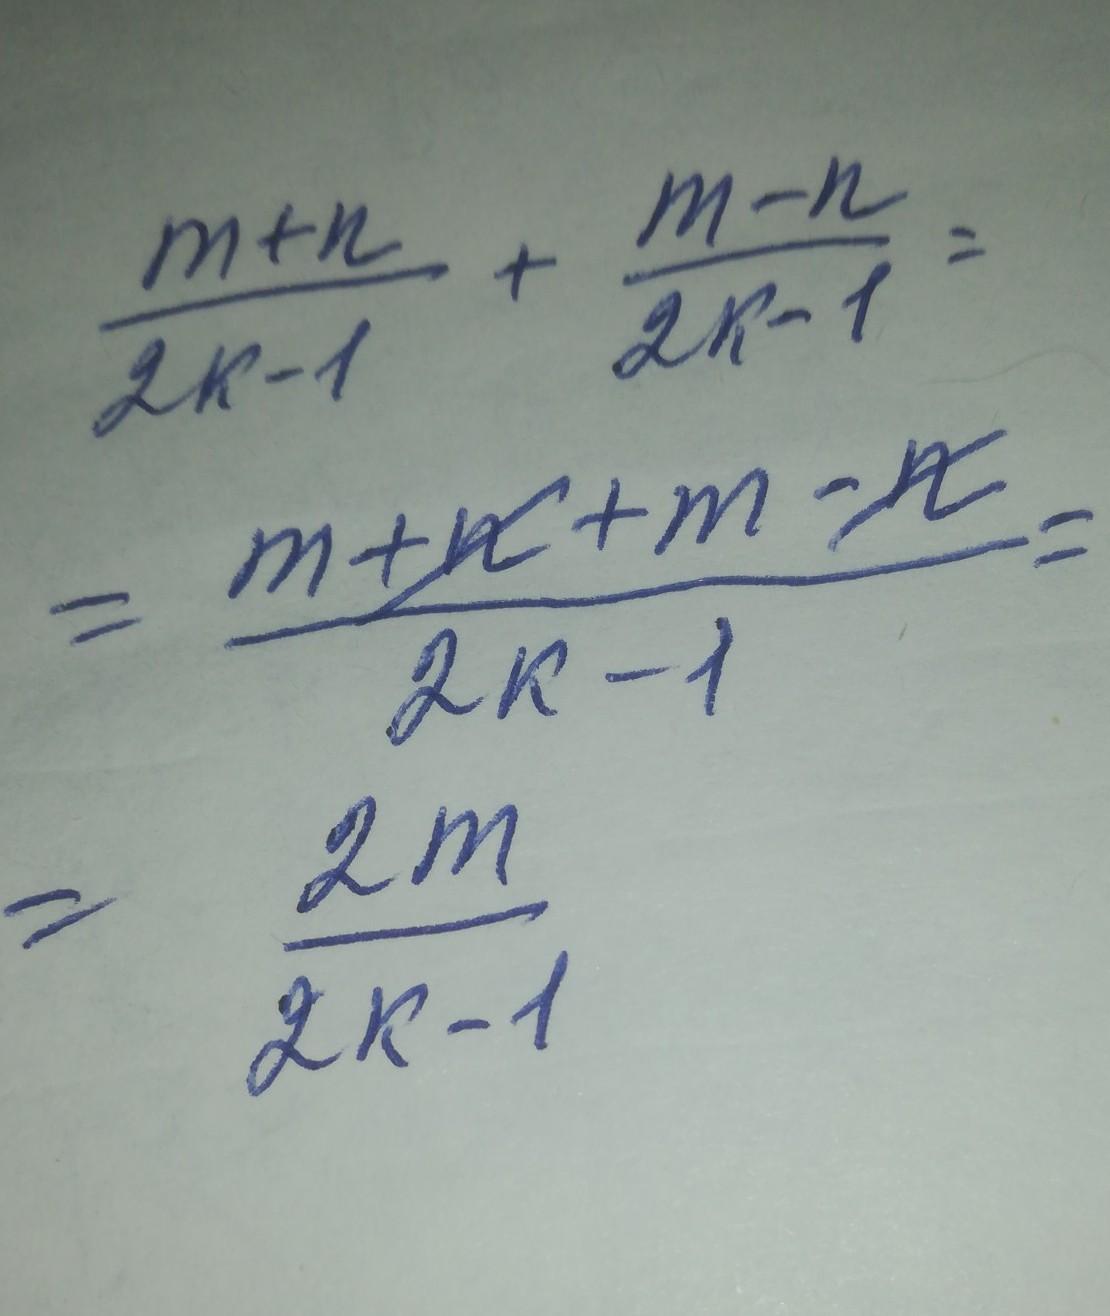 (m+n)/(2k-1) + (m-n)/(2k-1) =
= (m+n+m-n)/(2k-1) =
= 2m/(2k-1)